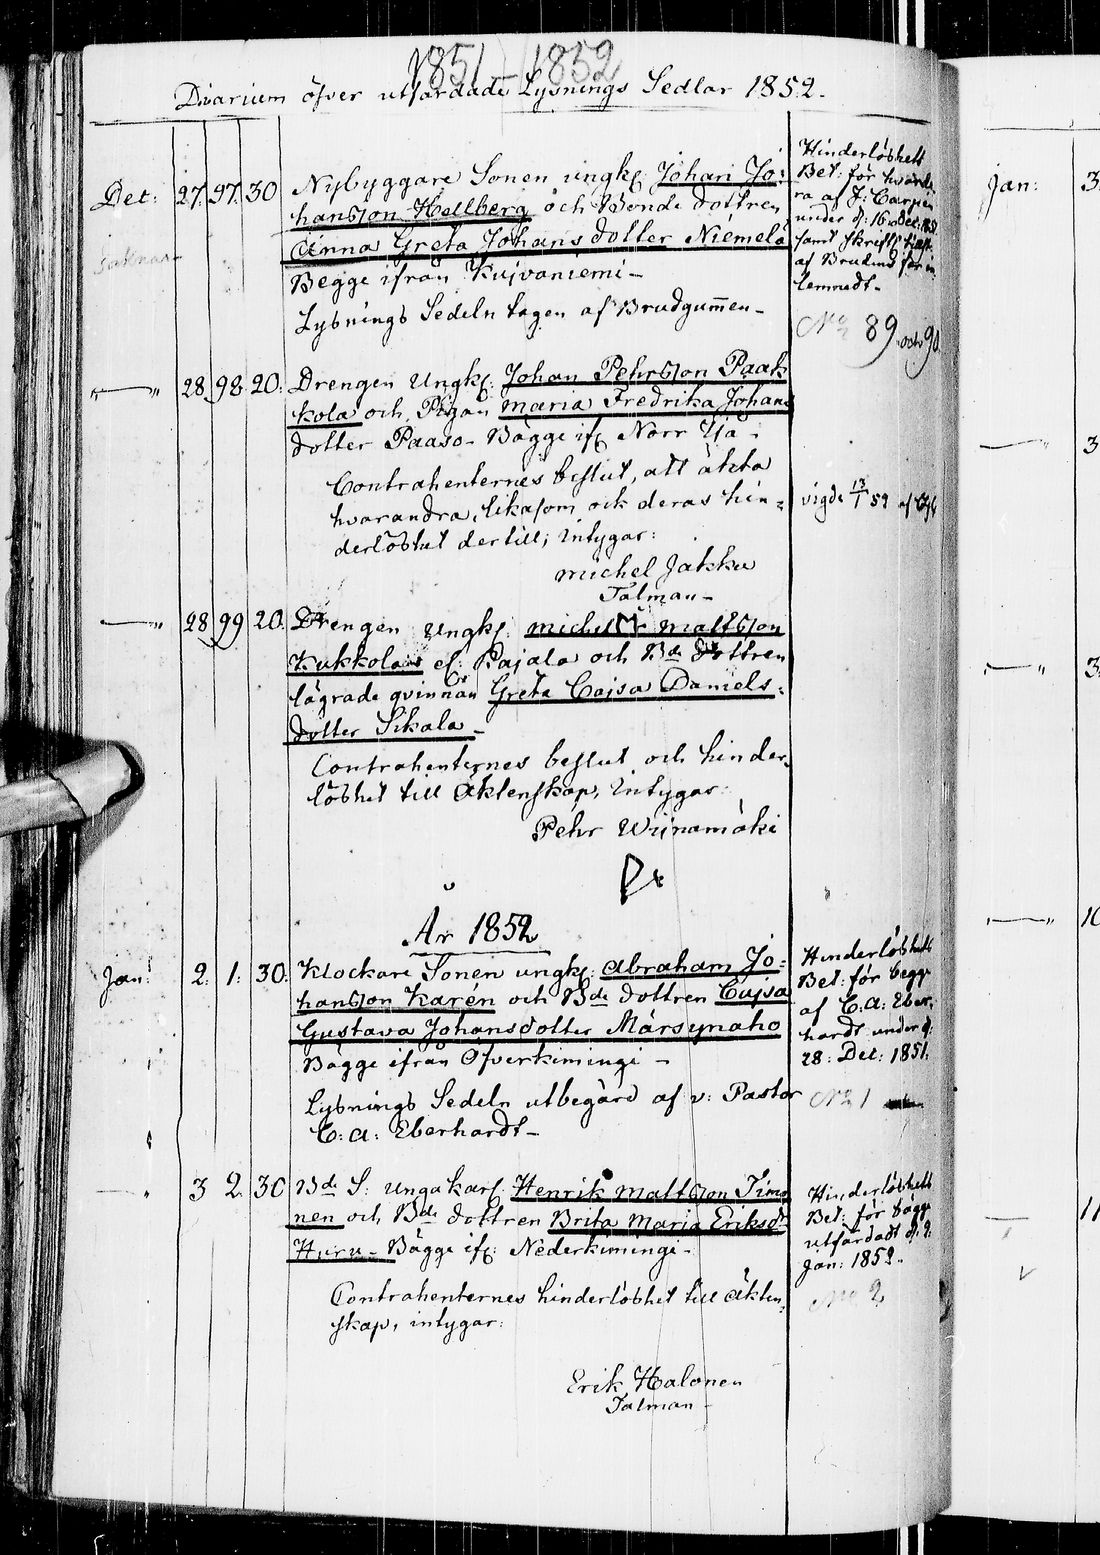 1851 – 1852
Diarium öfver utfärdade Lysnings Sedlar 1852.
Dec: 27. 97. 30 Nybyggare Sonen ungk: Johan Jo:
hansson Hellberg och Bonde dottren
Anna Greta Johans dotter Niemelä
Begge ifrån Kuivaniemi –
Lysnings Sedeln tagen af Brudgummen –
Hinderlöshets
Bet: för hvard:
ra af J: Carpen
under d: 16 Dec:
samt skriftl:
af Brudens för in
lemnadt –
No 89 och 90.
—„— 28. 98. 20. Drengen Ungk: Johan Pehrsson Paak
kola och Pigan Maria Fredrika Johans
dotter Paaso – Bägge if: Norr Ijå –
Contrahenternes beslut, att äkta
hvarandra, likasom ock deras hin =
derlöshet dertill; intygar:
Michel Jakku
Talman –
vigde 13/1 52 af
—„— 28 99 20. Drengen Ungk: Michel Mattsson
Kukkola ef: Pajala och Bde dottren
lägrade qvinnan Greta Cajsa Daniels =
dotter Sikala –
Contrahenternes beslut och hinder
löshet till Äktenskap, intygar:
Pehr Wiinamäki
År 1852
Jan: 2. 1. 30. Klockare Sonen ungk: Abraham Jo:
hansson Karén och Bde dottren Cajsa
Gustava Johansdotter Märsynaho
Bägge ifrån Öfverkiimingi –
Lysnings Sedeln utbegärd af v: Pastor
C: A: Eberhardt –
Hinderlöshets
Bet: för begge
af C: A: Eber,
hardt under d:
28: Dec: 1851.
No 1
—„ 3 2 30 Bde S: Ungakarl Henrik Mattsson Timo
nen och Bde dottren Brita Maria Eriksdr
Huru – Bägge if: Nederkiimingi –
Contrahenternes hinderlöshet till Äkten,
skap, intygar:
Erik Halonen
Talman –
Hinderlöshets
Bet: för bägge
utfärdadt d: 2.
Jan: 1852.
No 2
Jan: 3
—„ 3
—„ 3
—„ 10
— 11